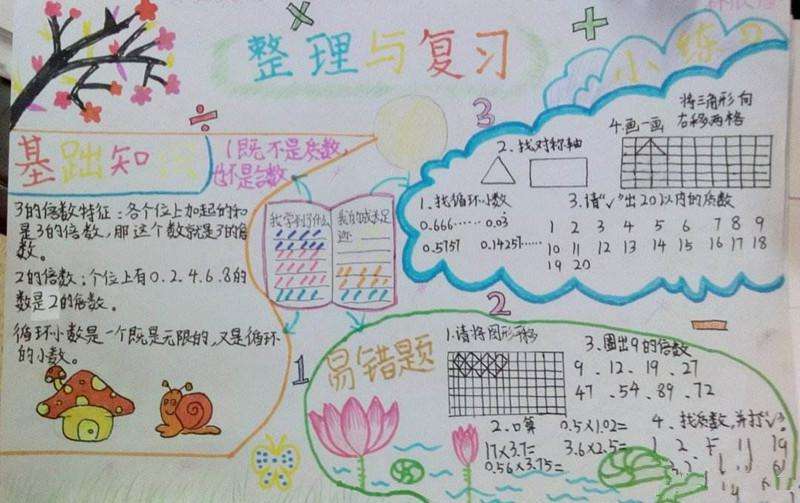 整理与复习
小练习
基础知
1既不是质数,
也不是合数
3的倍数特征：各个位上加起的和
是3的倍数,那这个数就是3的倍
数。
2的倍数：个位上有0.2.4.6.8的
数是2的倍数。
循环小数是一个既是无限的,又是循环
的小数。
我学到了什么
我的成长足
迹:
3
2.找对称轴
4.画一画
将三角形向
右移两格
1.找循环小数
0.666……
0.03
0.5757
0.14251……
3.请“√”出20以内的质数
1 2 3 4 5 6 7 8 9
10 11 12 13 14 15 16 17 18
19 20
1
2
易错题
1.请将图形平移
3.圈出9的倍数
9.12.19.27
47.54.89.72
2.口算
0.5×1.02=
17×3.7=
3.6×2.5=
0.56×3.75=
4.找质数,并打“√”
1 2 11 19